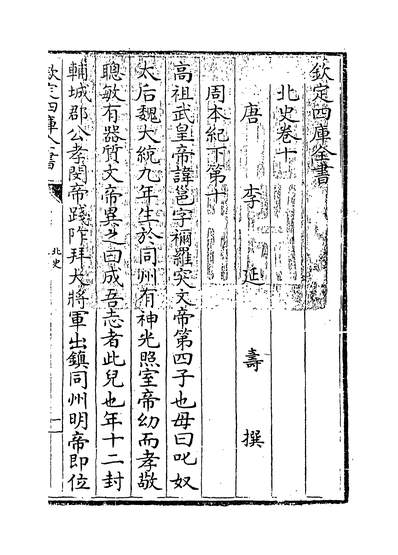 欽定四庫全書
北史卷十
唐李延壽撰
周本紀下第十
高祖武皇帝諱邕字禰羅突文帝第四子也母曰叱奴
太后魏大統九年生於同州有神光照室帝幼而孝敬
聰敏有器質文帝異之曰成吾志者此兒也年十二封
輔城郡公孝閔帝踐阼拜大將軍出鎮同州明帝即位
欽定四庫全書
北史
一